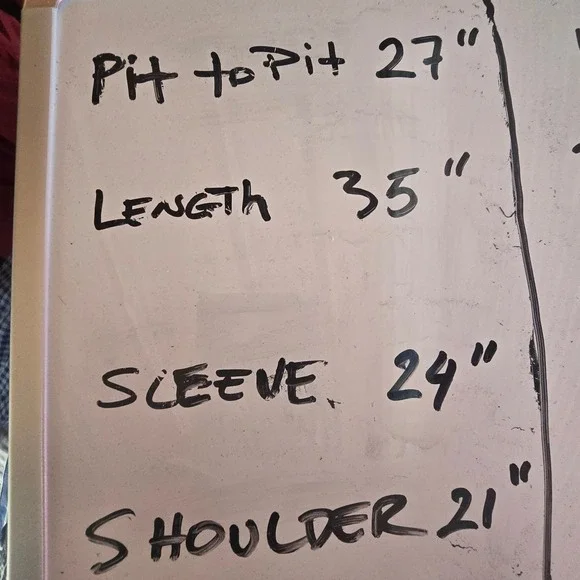 Pit to Pit 27"
LENGTh 35"
SLEEVE 24"
SHOULDER 21"